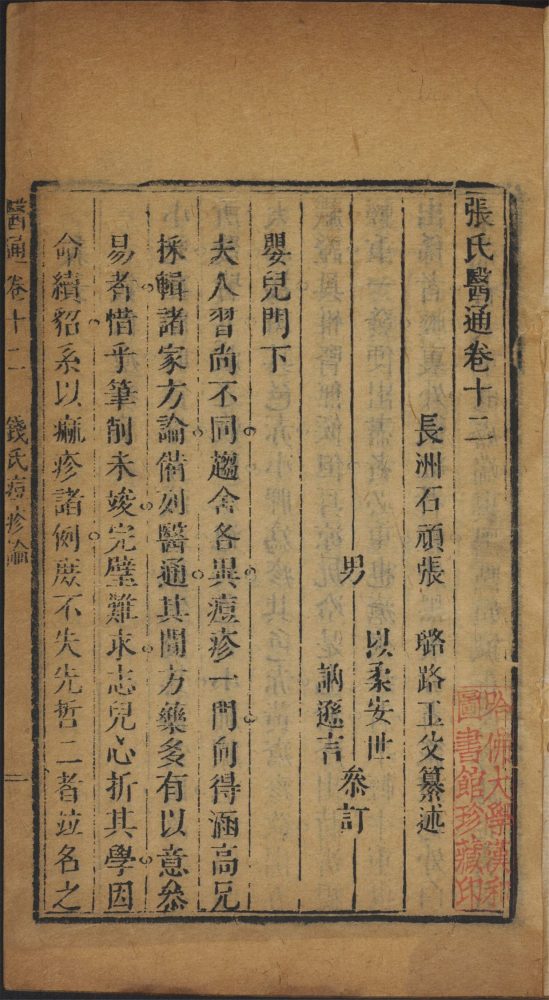 張氏醫通卷十二
長洲石頑張 璐路玉父纂述
男 以柔安世 叅訂
訥遜言
嬰兒門下
夫人習尚不同趨舍各異痘疹一門向得涵高兄
採輯諸家方論俻列醫通其間方藥多有以意叅
易者惜乎筆削未竣完璧難求志兒心折其學因
命續貂系以痲疹諸例庶不失先哲二者竝名之
醫通卷十二 錢氏痘疹論 一
哈佛大學漢和
圖書館珍藏印